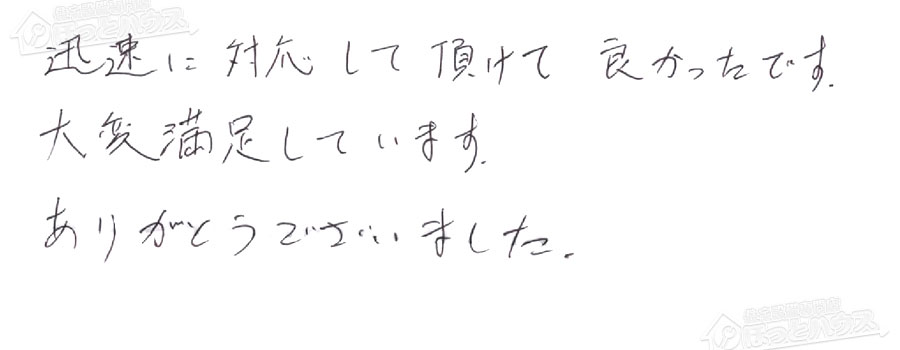 迅速に対応して頂けて良かったです.
大変満足しています.
ありがとうございました.
ほっとハウス